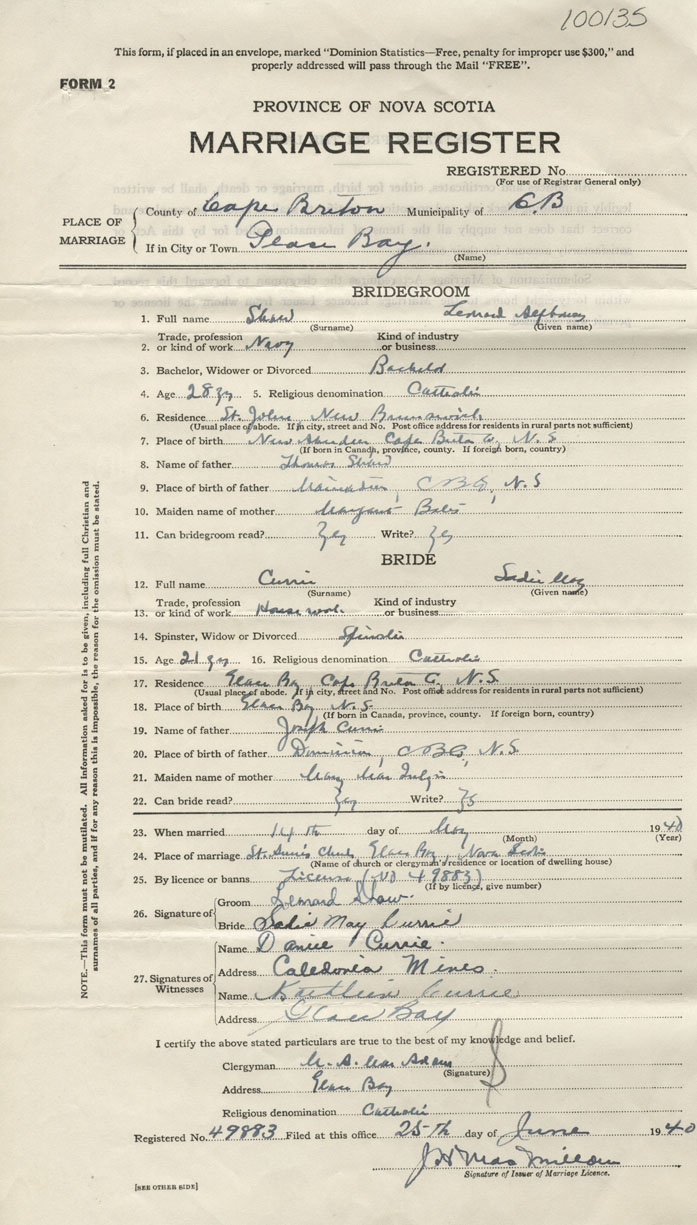 100135
This form, if placed in an envelope, marked "Dominion Statistics—Free, penalty for improper use $300," and
properly addressed will pass through the Mail "FREE".
FORM 2
PROVINCE OF NOVA SCOTIA
MARRIAGE REGISTER
REGISTERED No.
(For use of Registrar General only)
PLACE OF MARRIAGE
County of Cape Breton Municipality of C.B
If in City or Town Glace Bay.
(Name)
BRIDEGROOM
1. Full name Shaw Leonard
(Surname) (Given name)
2. Trade, profession or kind of work Navy Kind of industry or business
3. Bachelor, Widower or Divorced Bachelor
4. Age 28 yrs 5. Religious denomination Catholic
6. Residence St. John, New Brunswick
(Usual place of abode. If in city, street and No. Post office address for residents in rural parts not sufficient)
7. Place of birth New Aberdeen Cape Breton Co, N.S
(If born in Canada, province, county. If foreign born, country)
8. Name of father Thomas Shaw
9. Place of birth of father Mainadieu, C B Co, N.S
10. Maiden name of mother Margaret
11. Can bridegroom read? Yes Write? Yes
BRIDE
12. Full name Currie Sadie May
(Surname) (Given name)
13. Trade, profession or kind of work House work Kind of industry or business
14. Spinster, Widow or Divorced Spinster
15. Age 21 yrs 16. Religious denomination Catholic
17. Residence Glace Bay Cape Breton Co, N.S.
(Usual place of abode. If in city, street and No. Post office address for residents in rural parts not sufficient)
18. Place of birth Glace Bay N.S.
(If born in Canada, province, county. If foreign born, country)
19. Name of father Joseph Currie
20. Place of birth of father Dominion, C B Co, N.S
21. Maiden name of mother Mary
22. Can bride read? Yes Write? Yes
23. When married 14 th day of May 1940
(Month) (Year)
24. Place of marriage St. Church Glace Bay, Nova Scotia
(Name of church or clergyman's residence or location of dwelling house)
25. By licence or banns License (No 49883)
(If by licence, give number)
26. Signature of
Groom Leonard Shaw.
Bride Sadie May Currie
27. Signatures of Witnesses
Name Currie.
Address Caledonia Mines.
Name Currie
Address Glace Bay
I certify the above stated particulars are true to the best of my knowledge and belief.
Clergyman M. A. Mac Adam
(Signature)
Address Glace Bay
Religious denomination Catholic
Registered No. 49883 Filed at this office 25th day of June 1940
J H MacMillan
Signature of Issuer of Marriage Licence.
[SEE OTHER SIDE]
NOTE.—This form must not be mutilated. All information asked for is to be given, including full Christian and
surnames of all parties, and if for any reason this is impossible, the reason for the omission must be stated.